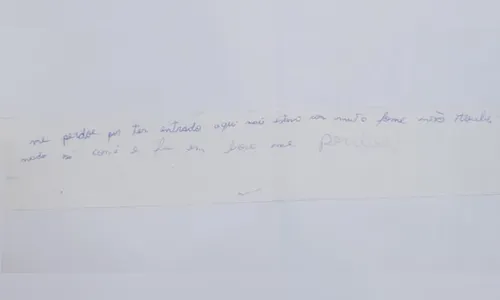 me perdoe por ter entrado aqui mais estou com muito fome mão Roubei
nada so comi e fui em bora me perdoa